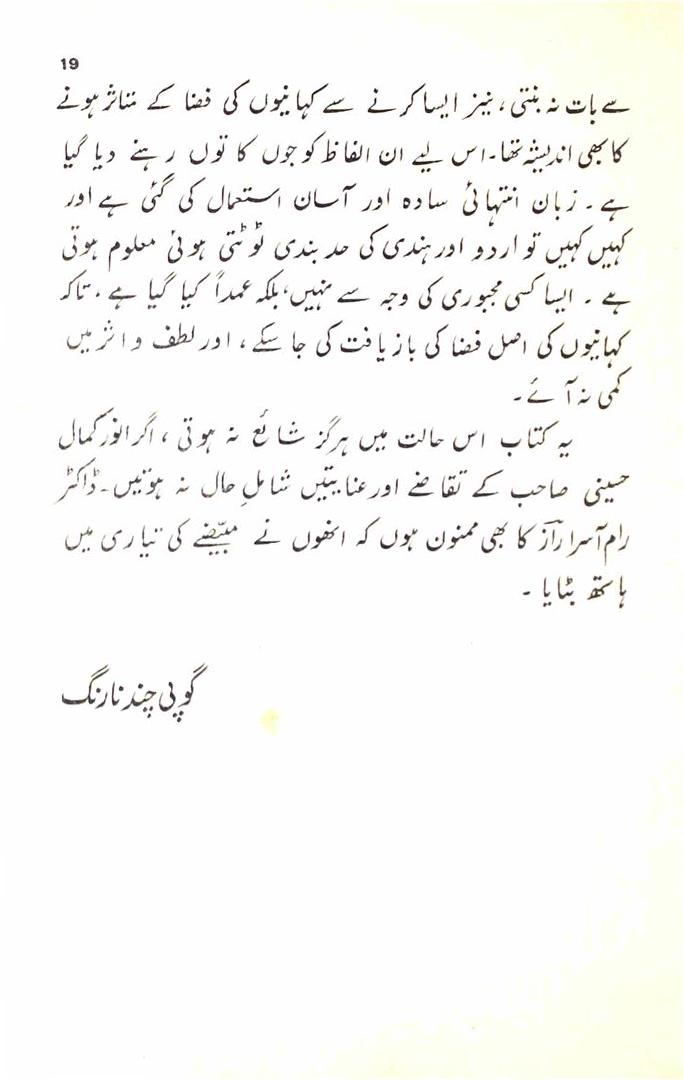 19
سے بات نہ بنتی، نیز ایسا کرنے سے کہانیوں کی فضا کے متاثر ہونے
کا بھی اندیشہ تھا۔ اس لیے ان الفاظ کو جوں کا توں رہنے دیا گیا
ہے۔ زبان انتہائی سادہ اور آسان استعمال کی گئی ہے اور
کہیں کہیں تو اردو اور ہندی کی حد بندی ٹوٹتی ہوئی معلوم ہوتی
ہے۔ ایسا کسی مجبوری کی وجہ سے نہیں، بلکہ عمداً کیا گیا ہے، تاکہ
کہانیوں کی اصل فضا کی باز یافت کی جا سکے، اور لطف و اثر میں
کمی نہ آئے۔
یہ کتاب اس حالت میں ہرگز شائع نہ ہوتی، اگر انور کمال
حسینی صاحب کے تقاضے اور عنایتیں شاملِ حال نہ ہوتیں۔ ڈاکٹر
رام آسرا رازؔ کا بھی ممنون ہوں کہ انھوں نے مبیّضے کی تیاری میں
ہاتھ بٹایا۔
گوپی چند نارنگ